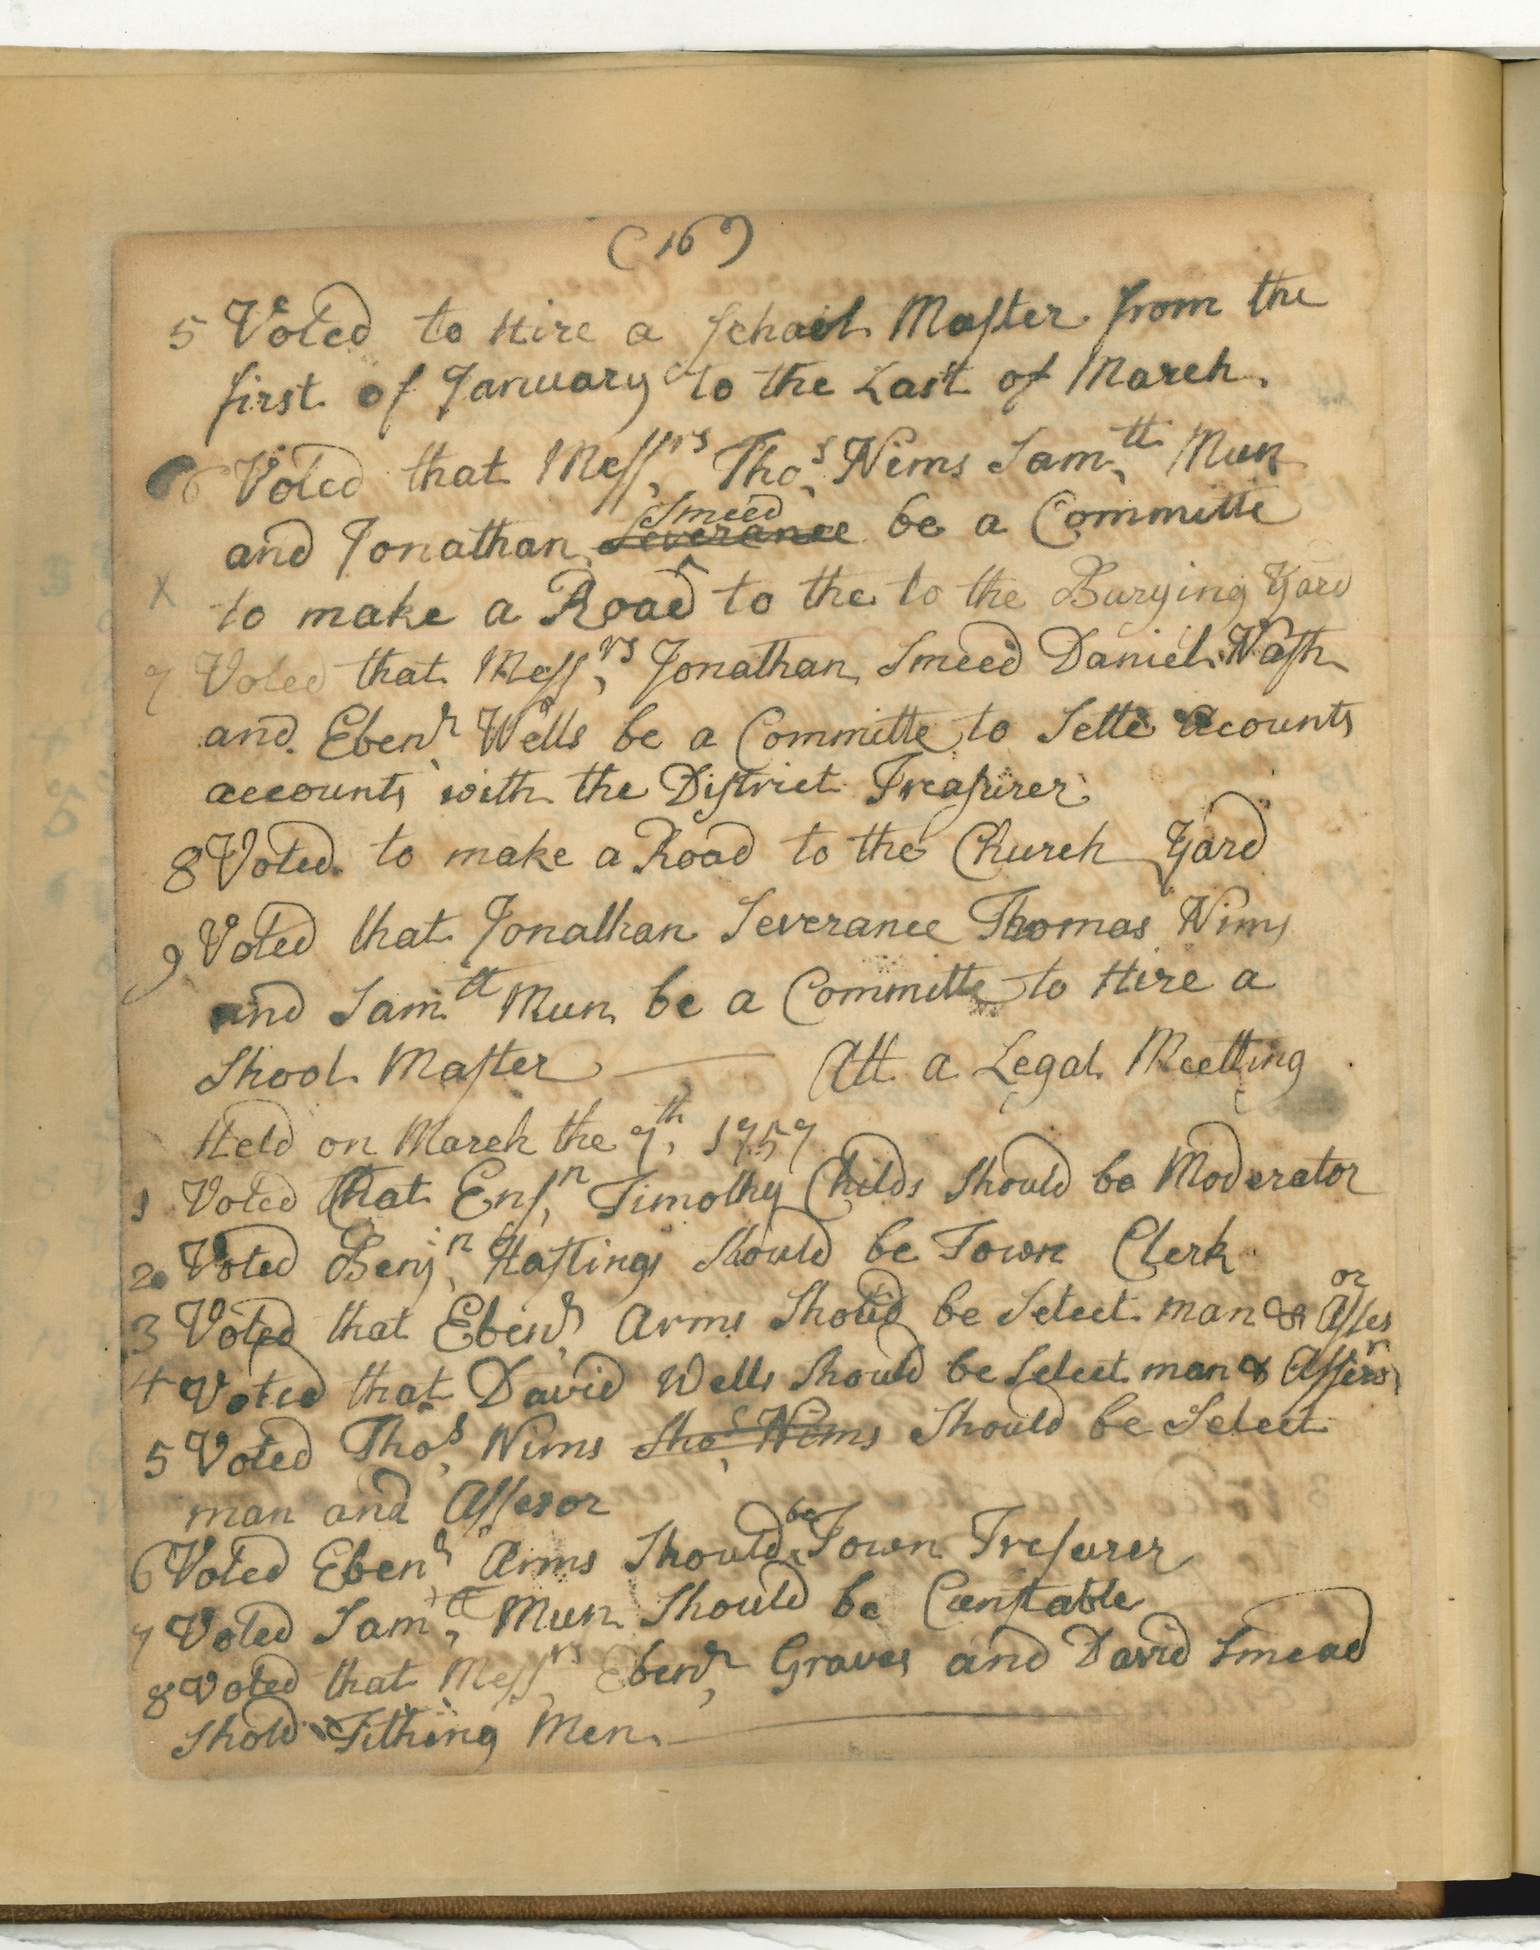 (16)
5 Voted to Hire a School Master from the
first of January to the Last of March.
6 Voted that Messrs, Thos, Nims Samll, Mun
Smeed
and Jonathan Severance be a Committe
X to make a Road to the to the Burying Yard
7 Voted that Messrs, Jonathan Smeed Daniel Nash
and Ebenr, Wells be a Committe to Sette accounts
accounts with the District Treasurer
8 Voted to make a Road to the Church Yard
9 Voted that Jonathan Severance Thomas Nims
and Samll Mun be a Committe to Hire a
Shool Master — Att a Legal Meetting
Held on March the 7th, 1757
1 Voted that Ensn, Timothy Childs Should be Moderator
2 Voted Benjn, Hastings Should be Town Clerk
or
3 Voted that Ebenr, Arms Should be Select man & Asses
4 Voted that David Wells Should be Select man & Assesor
5 Voted Thos, Nims Thos, Nims Should be Select
man and Assesor
be
6 Voted Ebenr, Arms Should Town Tresurer
7 Voted Samll, Mun Should be Cunstable
8 Voted that Messrs, Ebenr, Graves and David Smead
Shold Tithing Men. —